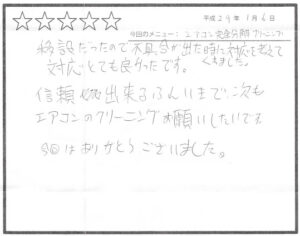 平成29年1月6日
今回のメニュー：エアコン完全分解クリーニング
移設だったので不具合が出た時に対応を考えて
くれました。
対応とても良かったです。
信頼 出来る ので、次も
エアコンのクリーニングお願いしたいです
今回はありがとうございました。